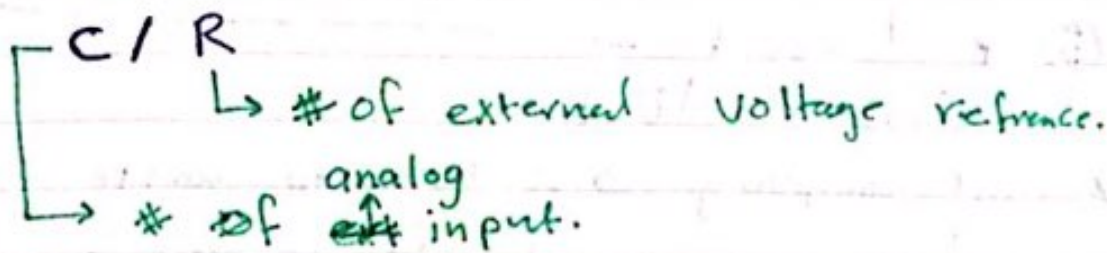 C / R
# of external voltage refrence.
analog
# of input.